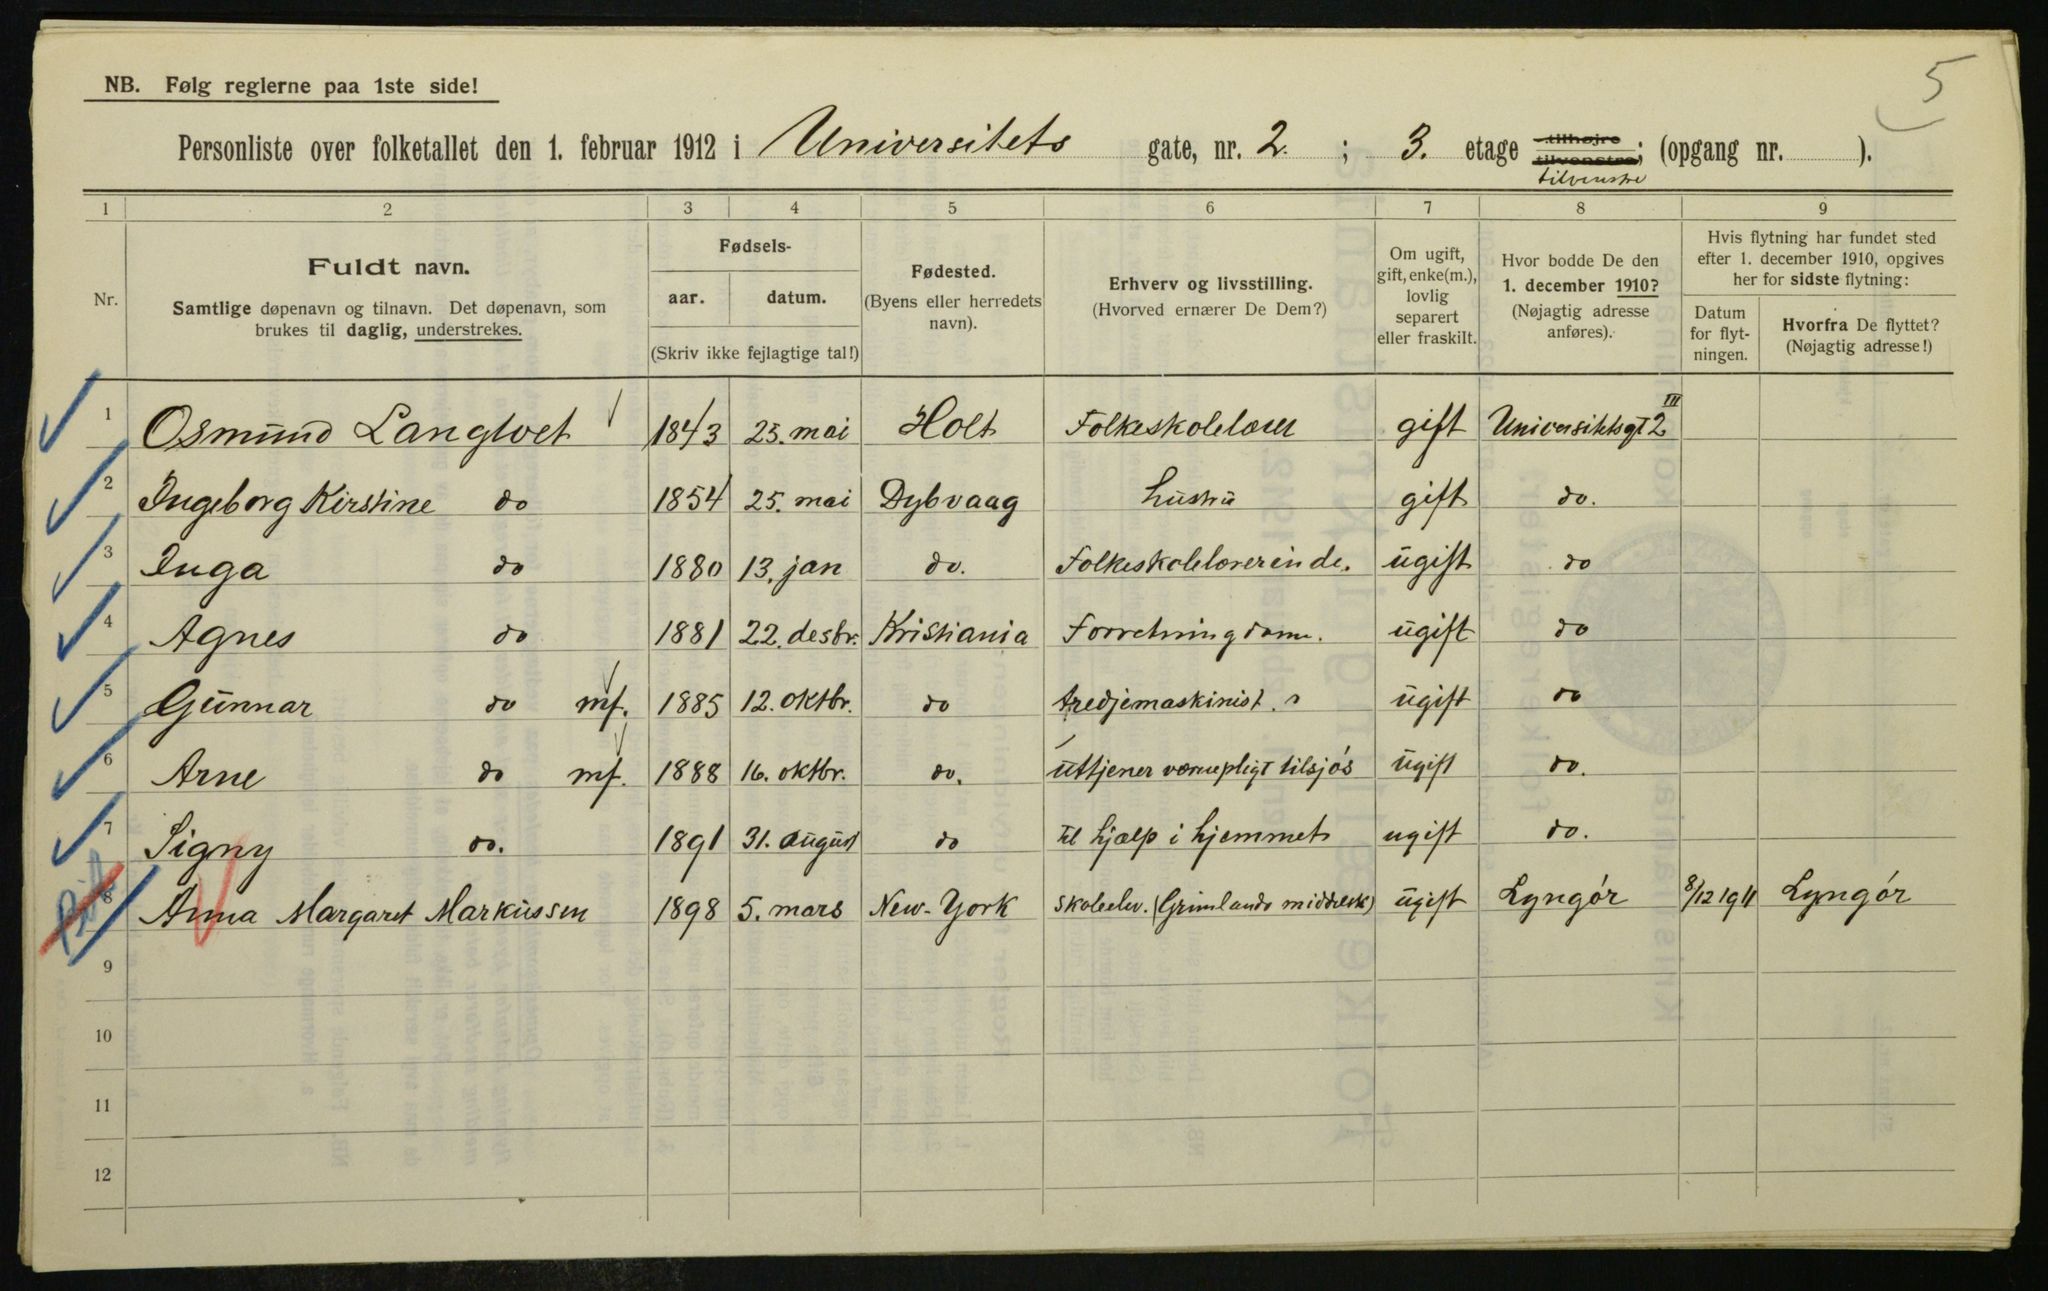 5
NB. Følg reglerne paa 1ste side!
Personliste over folketallet den 1. februar 1912 i Universitets gate, nr. 2. ; 3. etage tilhøjre tilvenstre; (opgang nr. ).
tilvenstre
1 2 3 4 5 6 7 8 9
Nr.
Fuldt navn.
Samtlige døpenavn og tilnavn. Det døpenavn, som
brukes til daglig, understrekes.
Fødsels-
aar. datum.
(Skriv ikke fejlagtige tal!)
Fødested.
(Byens eller herredets
navn).
Erhverv og livsstilling.
(Hvorved ernærer De Dem?)
Om ugift,
gift, enke(m.),
lovlig
separert
eller fraskilt.
Hvor bodde De den
1. december 1910?
(Nøjagtig adresse
anføres).
Hvis flytning har fundet sted
efter 1. december 1910, opgives
her for sidste flytning:
Datum
for flyt-
ningen.
Hvorfra De flyttet?
(Nøjagtig adresse!)
1 Osmund Langtvet 1843 25. mai Holt Folkeskolelærer gift Universitetsgt 2 III
2 Ingeborg Kirstine do 1854 25. mai Dybvaag hustru gift do.
3 Inga do 1880 13. jan do. Folkeskolelærerinde. ugift do
4 Agnes do 1881 22. desbr. Kristiania ugift do
5 Gunnar do mf. 1885 12. oktbr. do tredjemaskinist. ugift do
6 Arne do mf. 1888 16. oktbr. do. uttjener værnepligt tilsjøs ugift do.
7 Signy do. 1891 31. august do til hjælp i hjemmet ugift do.
8 Anna Margaret Markussen 1898 5. mars New-York skoleelev. ugift Lyngør 8/12 1911 Lyngør
9
10
11
12